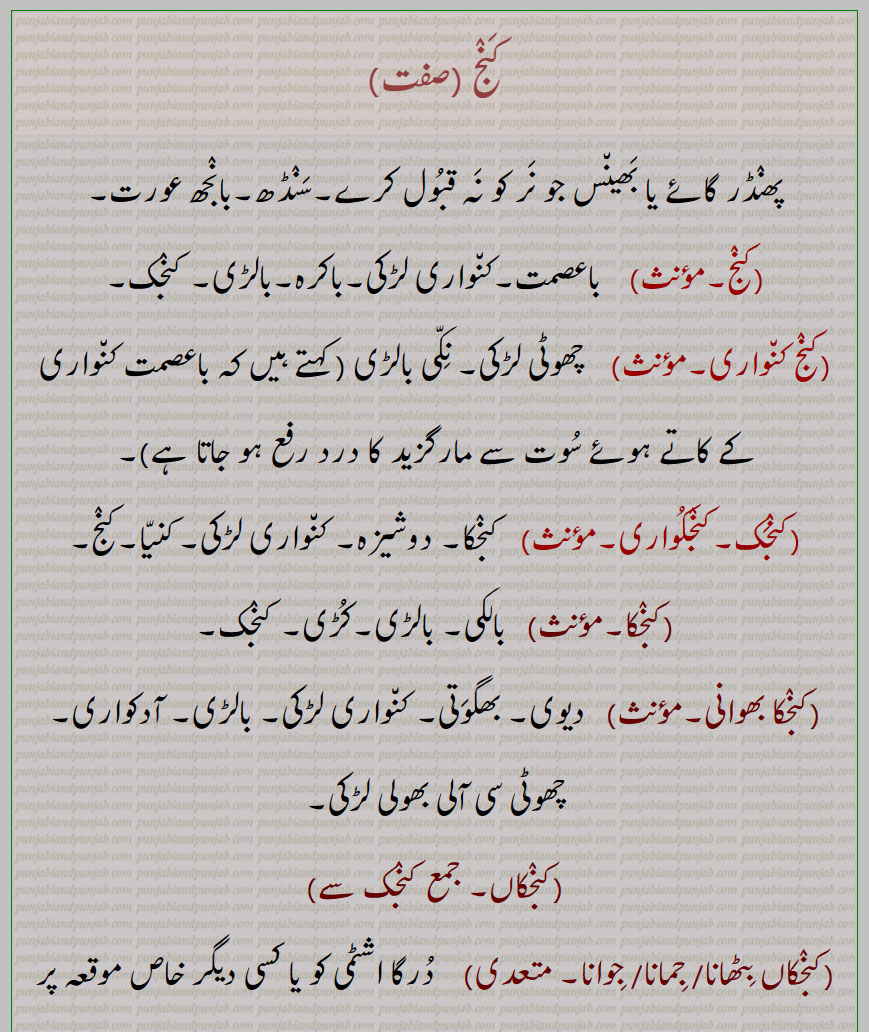 کَنْج (صفت)
پھنْڈر گائے یا بَھینّس جو نَر کو نَہ قبُول کرے۔سَنْڈھ۔بانْجھ عورت۔
(کنْج۔مؤنث) باعصمت۔کنّواری لڑکی۔باکرہ۔بالڑی۔ کنْجک۔
(کنْج کنّواری۔مؤنث) چھوٹی لڑکی۔ نِکّی بالڑی (کہتے ہیں کہ باعصمت کنّواری
کے کاتے ہوئے سُوت سے مارگزید کا درد رفع ہو جاتا ہے)۔
(کنْجک۔ کنْجکُواری۔مؤنث) کنْجکا۔ دوشیزہ۔ کنّواری لڑکی۔ کنیّا۔کنْج۔
(کنْجکا۔مؤنث) بالکی۔ بالڑی۔کُڑی۔ کنْجک۔
(کنْجکا بھوانی۔مؤنث) دیوی۔ بھگوَتی۔ کنّواری لڑکی۔ بالڑی۔ آدکواری۔
چھوٹی سی آلی بھولی لڑکی۔
(کنْجکاں۔ جمع کنْجک سے)
(کنْجکاں بِٹھانا/جِمانا/جِوانا۔ متعدی) دُرگا اشٹمی کو یا کسی دیگر خاص موقعہ پر